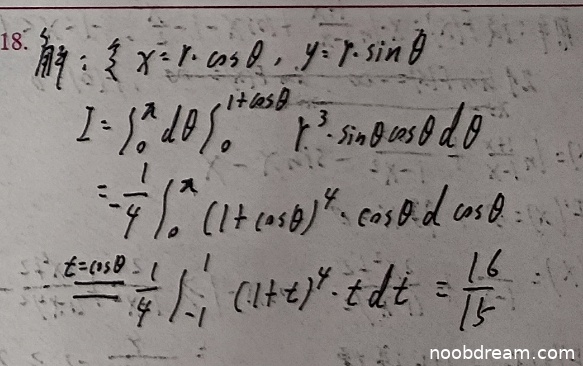 18. 解：令 x=r·cosθ，y=r·sinθ
I=∫₀^π dθ∫₀^(1+cosθ) r³·sinθcosθdθ
=-1/4∫₀^π (1+cosθ)⁴·cosθ d cosθ
t=cosθ = 1/4∫₋₁^1 (1+t)⁴·t dt = 16/15
noobdream.com